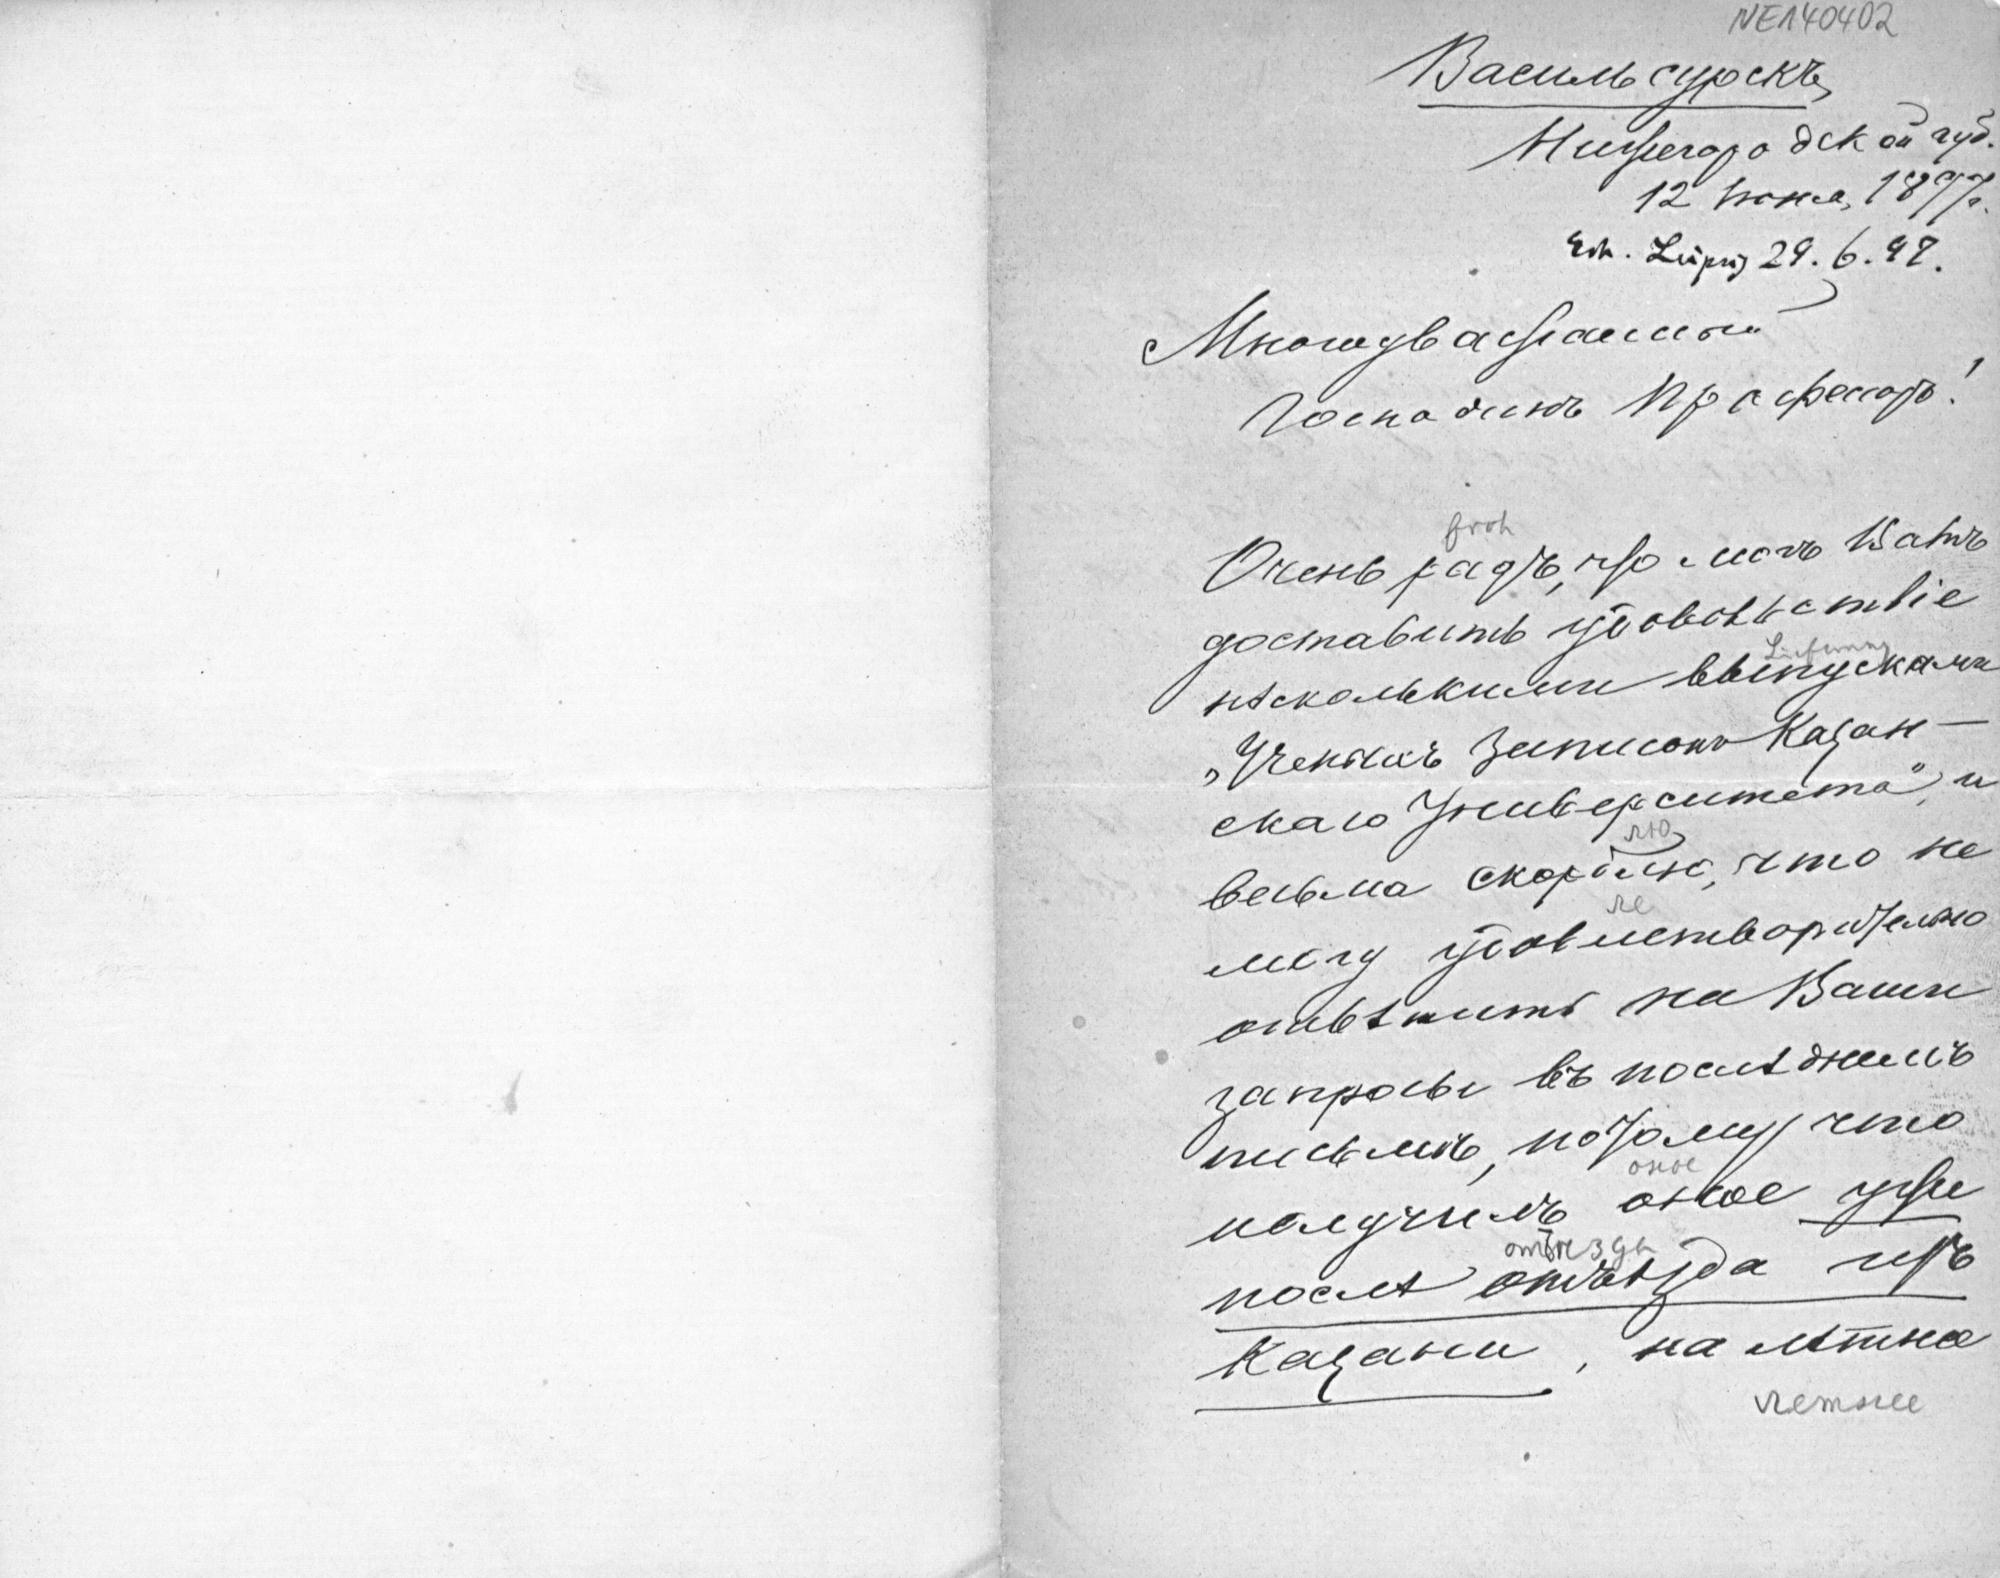 NE140402
Васильсурскъ,
Нижегородской губ.
12 Іюня, 1897г.
Erh. Leipzig 29. 6. 97.
Многоуважаемый
Господинъ Профессоръ!
froh
Очень радъ, что могъ Вамъ
доставить удовольствіе
Lieferung
нѣсколькими выпусками
„Ученыхъ Записокъ Казан-
скаго Университета", и
лю
весьма скорблю, что не
ле
могу удовлетворительно
отвѣтить на Ваши
запросы въ послѣднемъ
письмѣ, потому что
оное
получилъ оное уже
отъѣзда
послѣ отъѣзда изъ
Казани, на лѣтнее
летнее